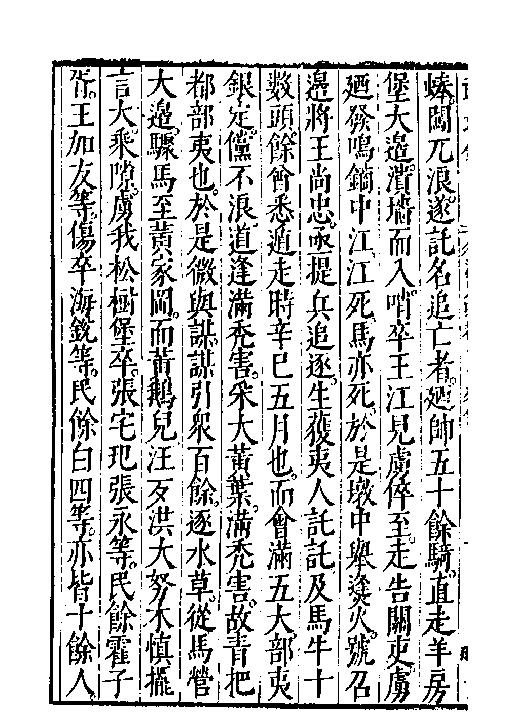 蜯。闖兀浪。遂託名追亡者。廼帥五十餘騎。直走羊房
堡大邊。潰墻而入。哨卒王江見虜倅至。走告關吏。虜
廼發鳴鏑中江。江死馬亦死。於是墩中舉𤇆火。號召
邊將王尚忠。亟提兵追逐。生獲夷人託託。及馬牛十
數頭。餘會悉遁走。時辛巳五月也。而會滿五大。部夷
銀定儻不浪道逢滿禿害。采大黃葉。滿禿害。故青把
都部夷也。於是微與謀。謀引眾百餘。逐水草。從馬營
大邊。驟馬至黃家岡。而黃鵝兒汪歹洪大努木慎擺
言大。乘隙虜我松樹堡卒。張宅圯張永等。民餘霍子
胥。王加友等。傷卒海銳等。民餘白四等。亦皆十餘人